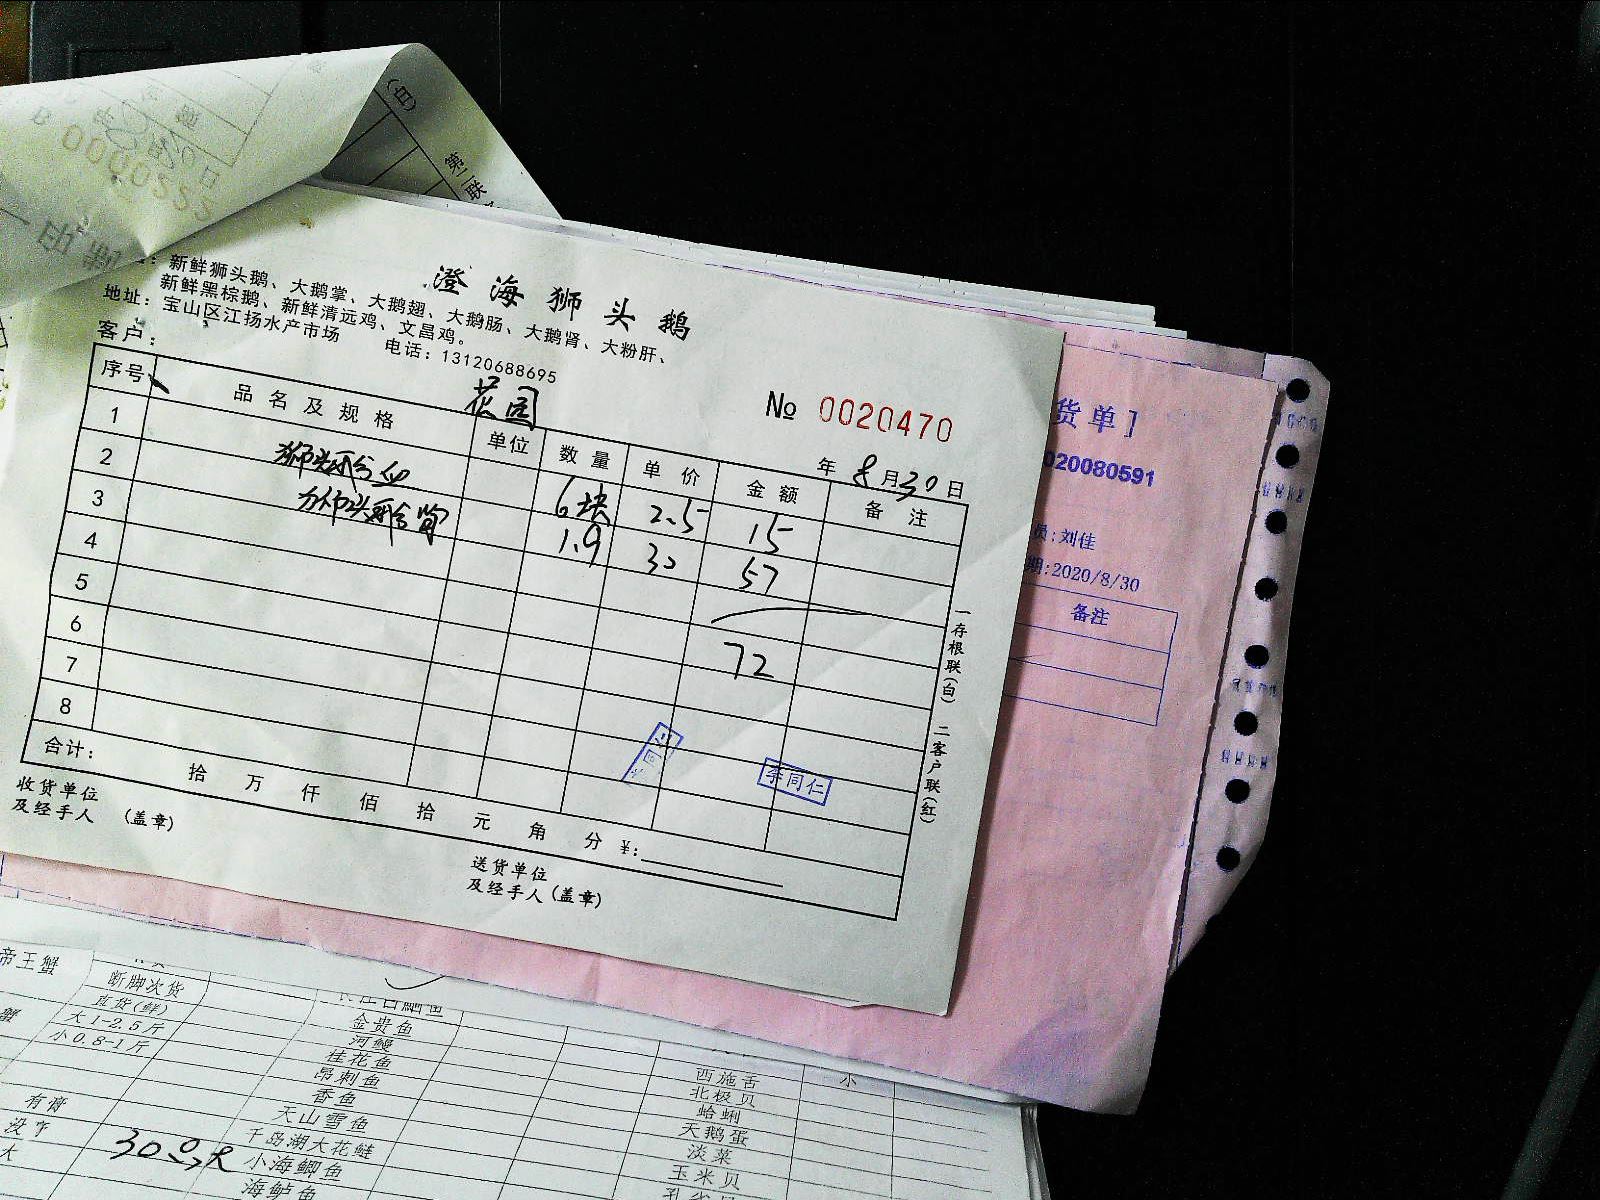 (白)
第二联
0000255
澄海狮头鹅
新鲜狮头鹅、大鹅掌、大鹅翅、大鹅肠、大鹅肾、大粉肝、
新鲜黑棕鹅、新鲜清远鸡、文昌鸡。
地址：宝山区江扬水产市场 电话：13120688695
客户： 花园
№ 0020470
年 8月30日
序号 品名及规格 单位 数量 单价 金额 备注
1 狮头鹅血 6块 2.5 15
2 狮头鹅肾 1.9 30 57
3
4 72
5
6
7
8
李同仁
合计： 拾 万 仟 佰 拾 元 角 分 ¥:
收货单位
及经手人 (盖章)
送货单位
及经手人(盖章)
一存根联(白) 二客户联(红)
货单]
020080591
员:刘佳
期:2020/8/30
备注
帝王蟹
断脚次货
直货(鲜)
蟹 大1-2.5斤
小0.8-1斤
金贵鱼
河鳗
桂花鱼
昂刺鱼
香鱼
天山雪鱼
千岛湖大花鲢
小海鲫鱼
海鲈鱼
有膏
大
西施舌 小
北极贝
蛤蜊
天鹅蛋
淡菜
玉米贝